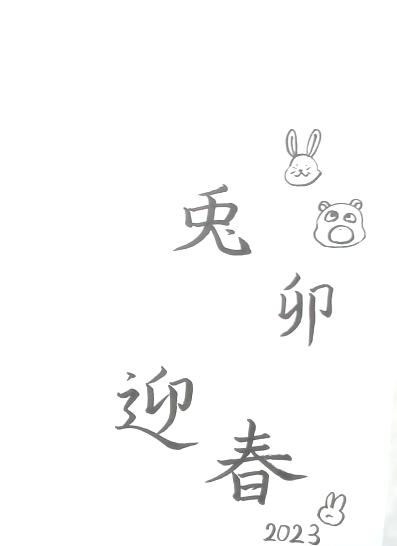 兎
卯
迎
春
2023